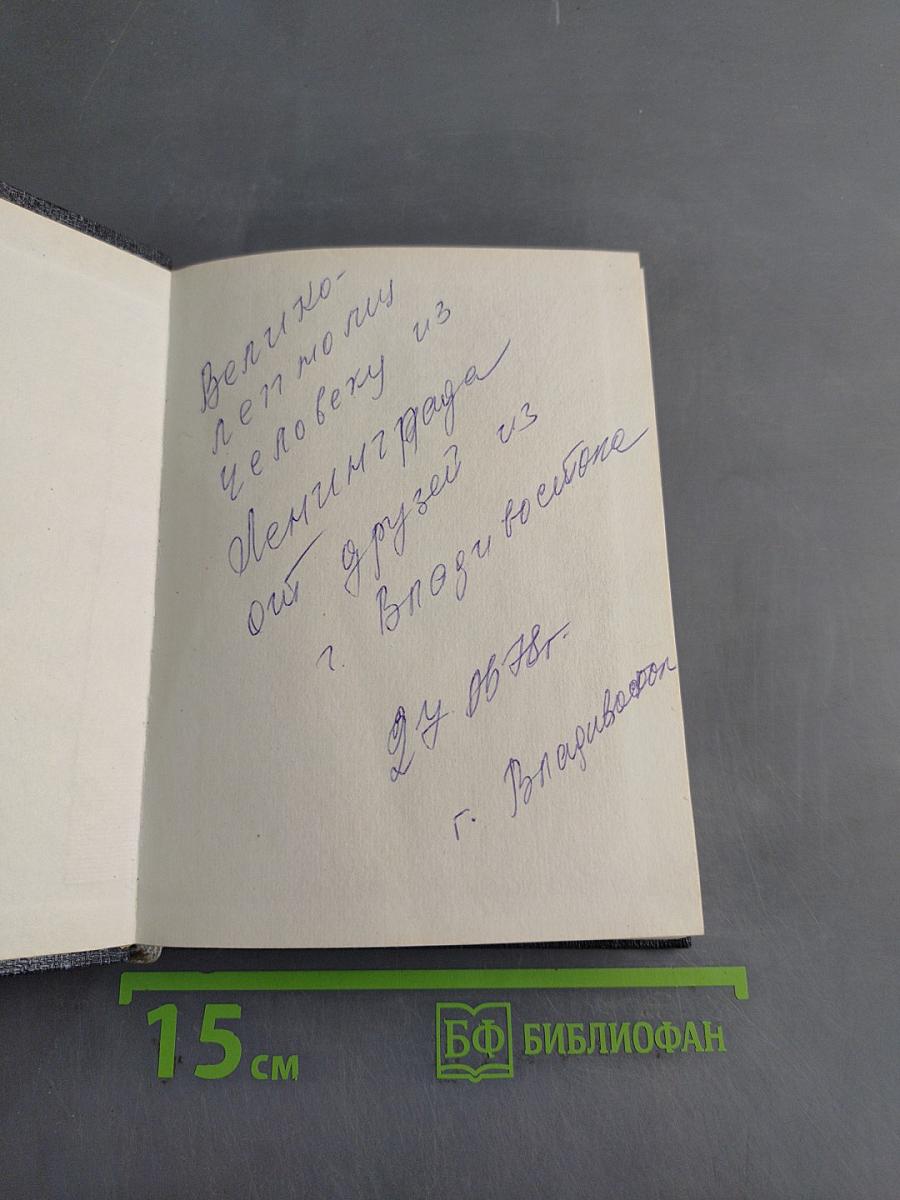 Велико-
лепному
человеку из
Ленинграда
от друзей из
г. Владивостока
06 78г.
г. Владивосток
15 см
БФ БИБЛИОФАН